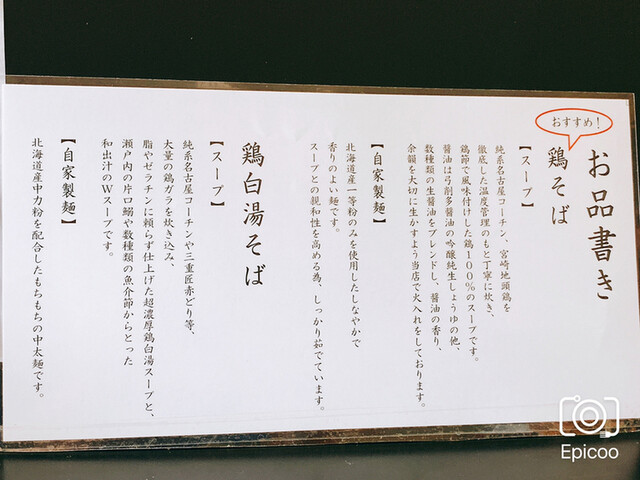 お品書き
おすすめ!
鶏そば
【スープ】
純系名古屋コーチン、宮崎地頭鶏を
徹底した温度管理のもと丁寧に炊き、
鶏節で風味付けした鶏100%のスープです。
醤油は弓削多醤油の吟醸純生しょうゆの他、
数種類の生醤油をブレンドし、醤油の香り、
余韻を大切に生かすよう当店で火入れをしております。
【自家製麺】
北海道産一等粉のみを使用したしなやかで
香りのよい麺です。
スープとの親和性を高める為、しっかり茹でています。
鶏白湯そば
【スープ】
純系名古屋コーチンや三重匠赤どり等、
大量の鶏ガラを炊き込み、
脂やゼラチンに頼らず仕上げた超濃厚鶏白湯スープと、
瀬戸内の片口鰯や数種類の魚介節からとった
和出汁のWスープです。
【自家製麺】
北海道産中力粉を配合したもちもちの中太麺です。
Epicoo